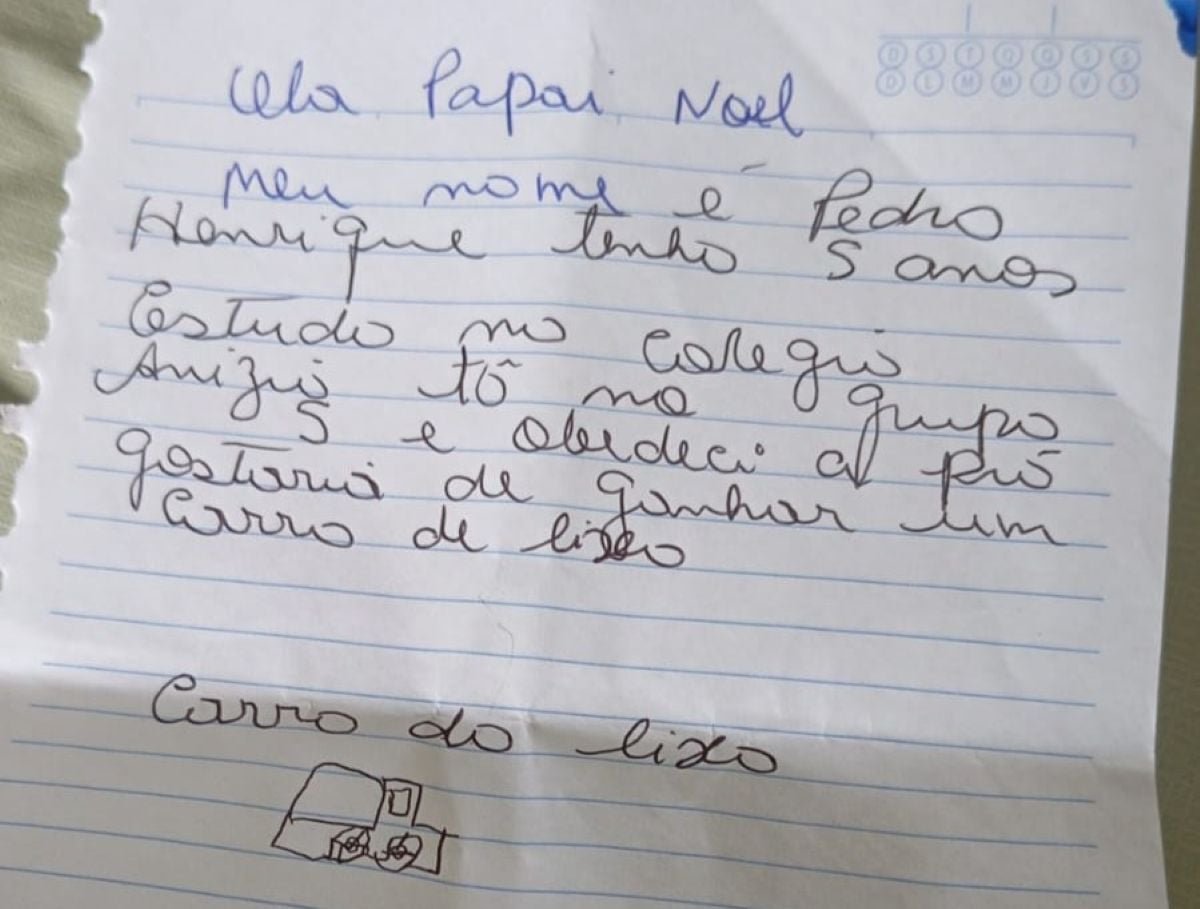 D S T Q Q S S
D L M M J V S
Ola Papai Noel
Meu nome é Pedro
Henrique tenho 5 anos
Estudo no colegio
Anizio tô no grupo
5 e obedeci a pró
gostaria de ganhar um
Carro de lixo
Carro do lixo